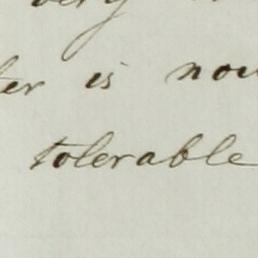 very
is now
tolerable